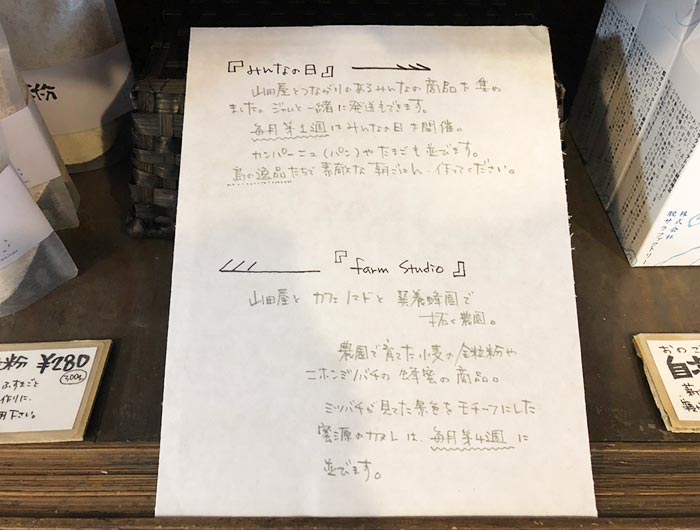 『みんなの日』
山田屋とつながりのあるみんなの商品を集め
ました。ジャムと一緒に発送もできます。
毎月第1週はみんなの日を開催。
カンパーニュ(パン)やたまごも並びます。
島の逸品たちで素敵な朝ごはん、作ってください。
『farm studio』
山田屋とカフェノマドと巽養蜂園で
拓く農園。
農園で育てた小麦の全粒粉や
ニホンミツバチの蜂蜜の商品。
ミツバチが見てた景色をモチーフにした
蜜源のカヌレは、毎月第4週に
並びます。
粉 ¥280
300g
ふすまごと
作りに、
用下さい。
株式会社
脱サラファクトリー
おのこ